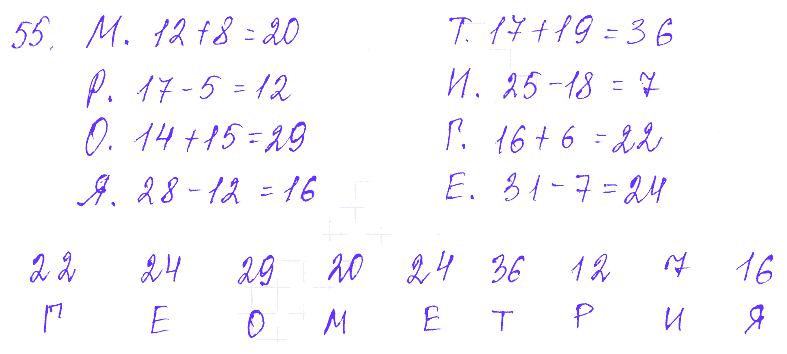 55. М. 12+8=20 Т. 17+19=36
Р. 17-5=12 И. 25-18=7
О. 14+15=29 Г. 16+6=22
Я. 28-12=16 Е. 31-7=24
22 24 29 20 24 36 12 7 16
Г Е О М Е Т Р И Я